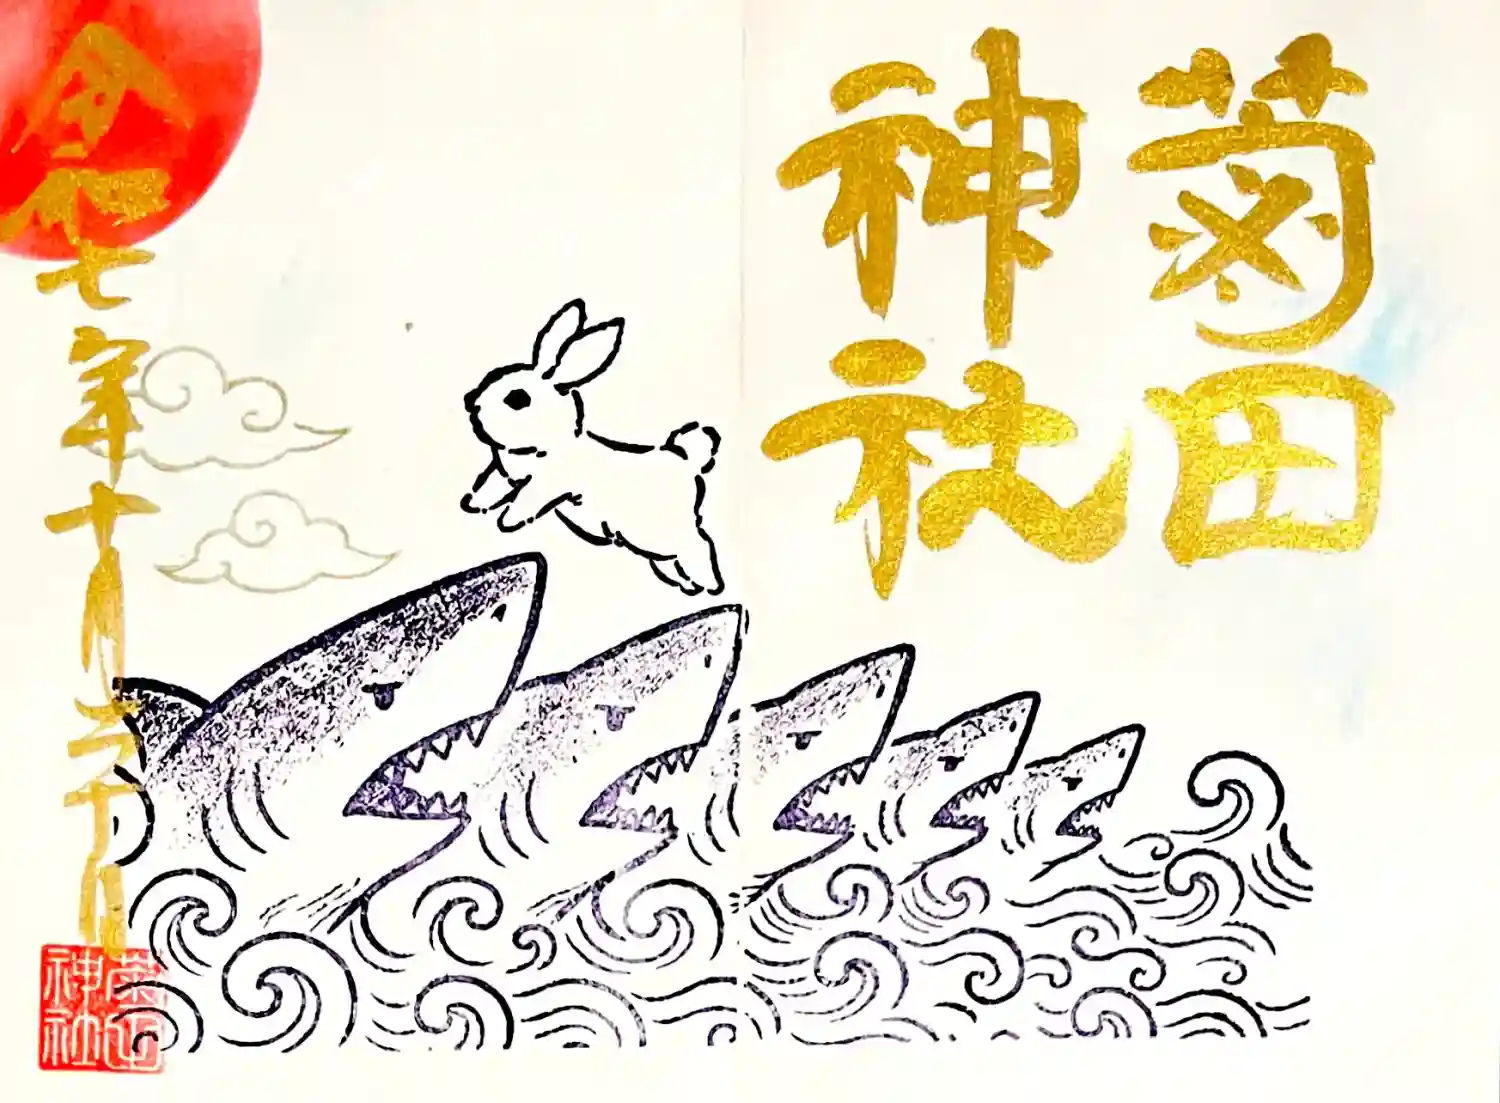 菊田
神社
令和七年十月十日
菊田
神社